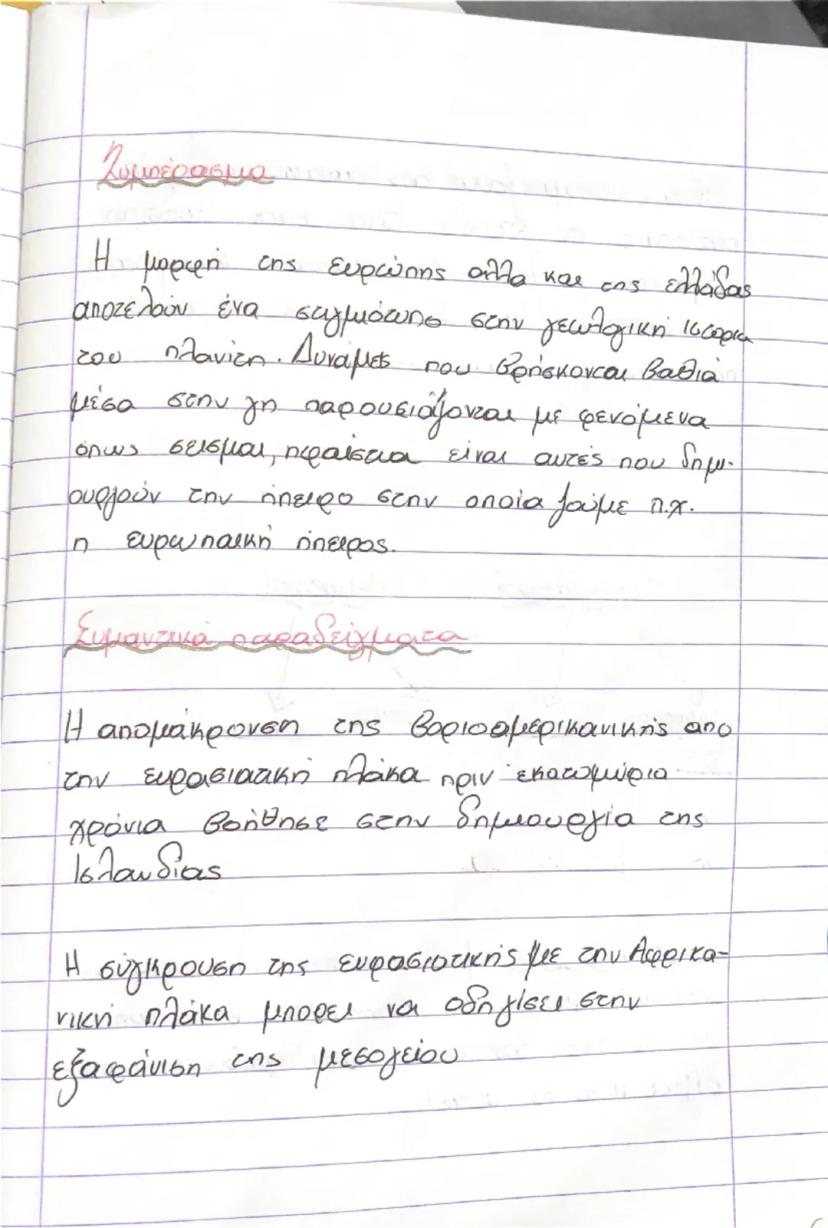 Συμπέρασμα
Η μορφή της ευρώπης αλλα και της ελλάδας
αποτελούν ένα στιγμιότυπο στην γεωλογική ιστορια
του πλανίτη. Δυνάμεις που βρήσκονται βαθιά
μέσα στην γη παρουσιάζονται με φενόμενα
όπως σεισμοι, ηφαίστεια είναι αυτές που δημι-
ουργούν την ήπειρο στην οποία ζούμε π.χ.
η ευρωπαική ήπειρος.
Συμαντικά παραδείγματα
Η απομάκρουνση της βοριοαμερικανικής απο
την ευρασιατική πλάκα πριν εκατομύρια
χρόνια βοήθησε στην δημιουργία της
Ισλανδίας
Η σύγκρουση της ευρασιατικής με την Αφρικα-
νική πλάκα μπορει να οδηγίσει στην
εξαφάνιση της μεσογείου